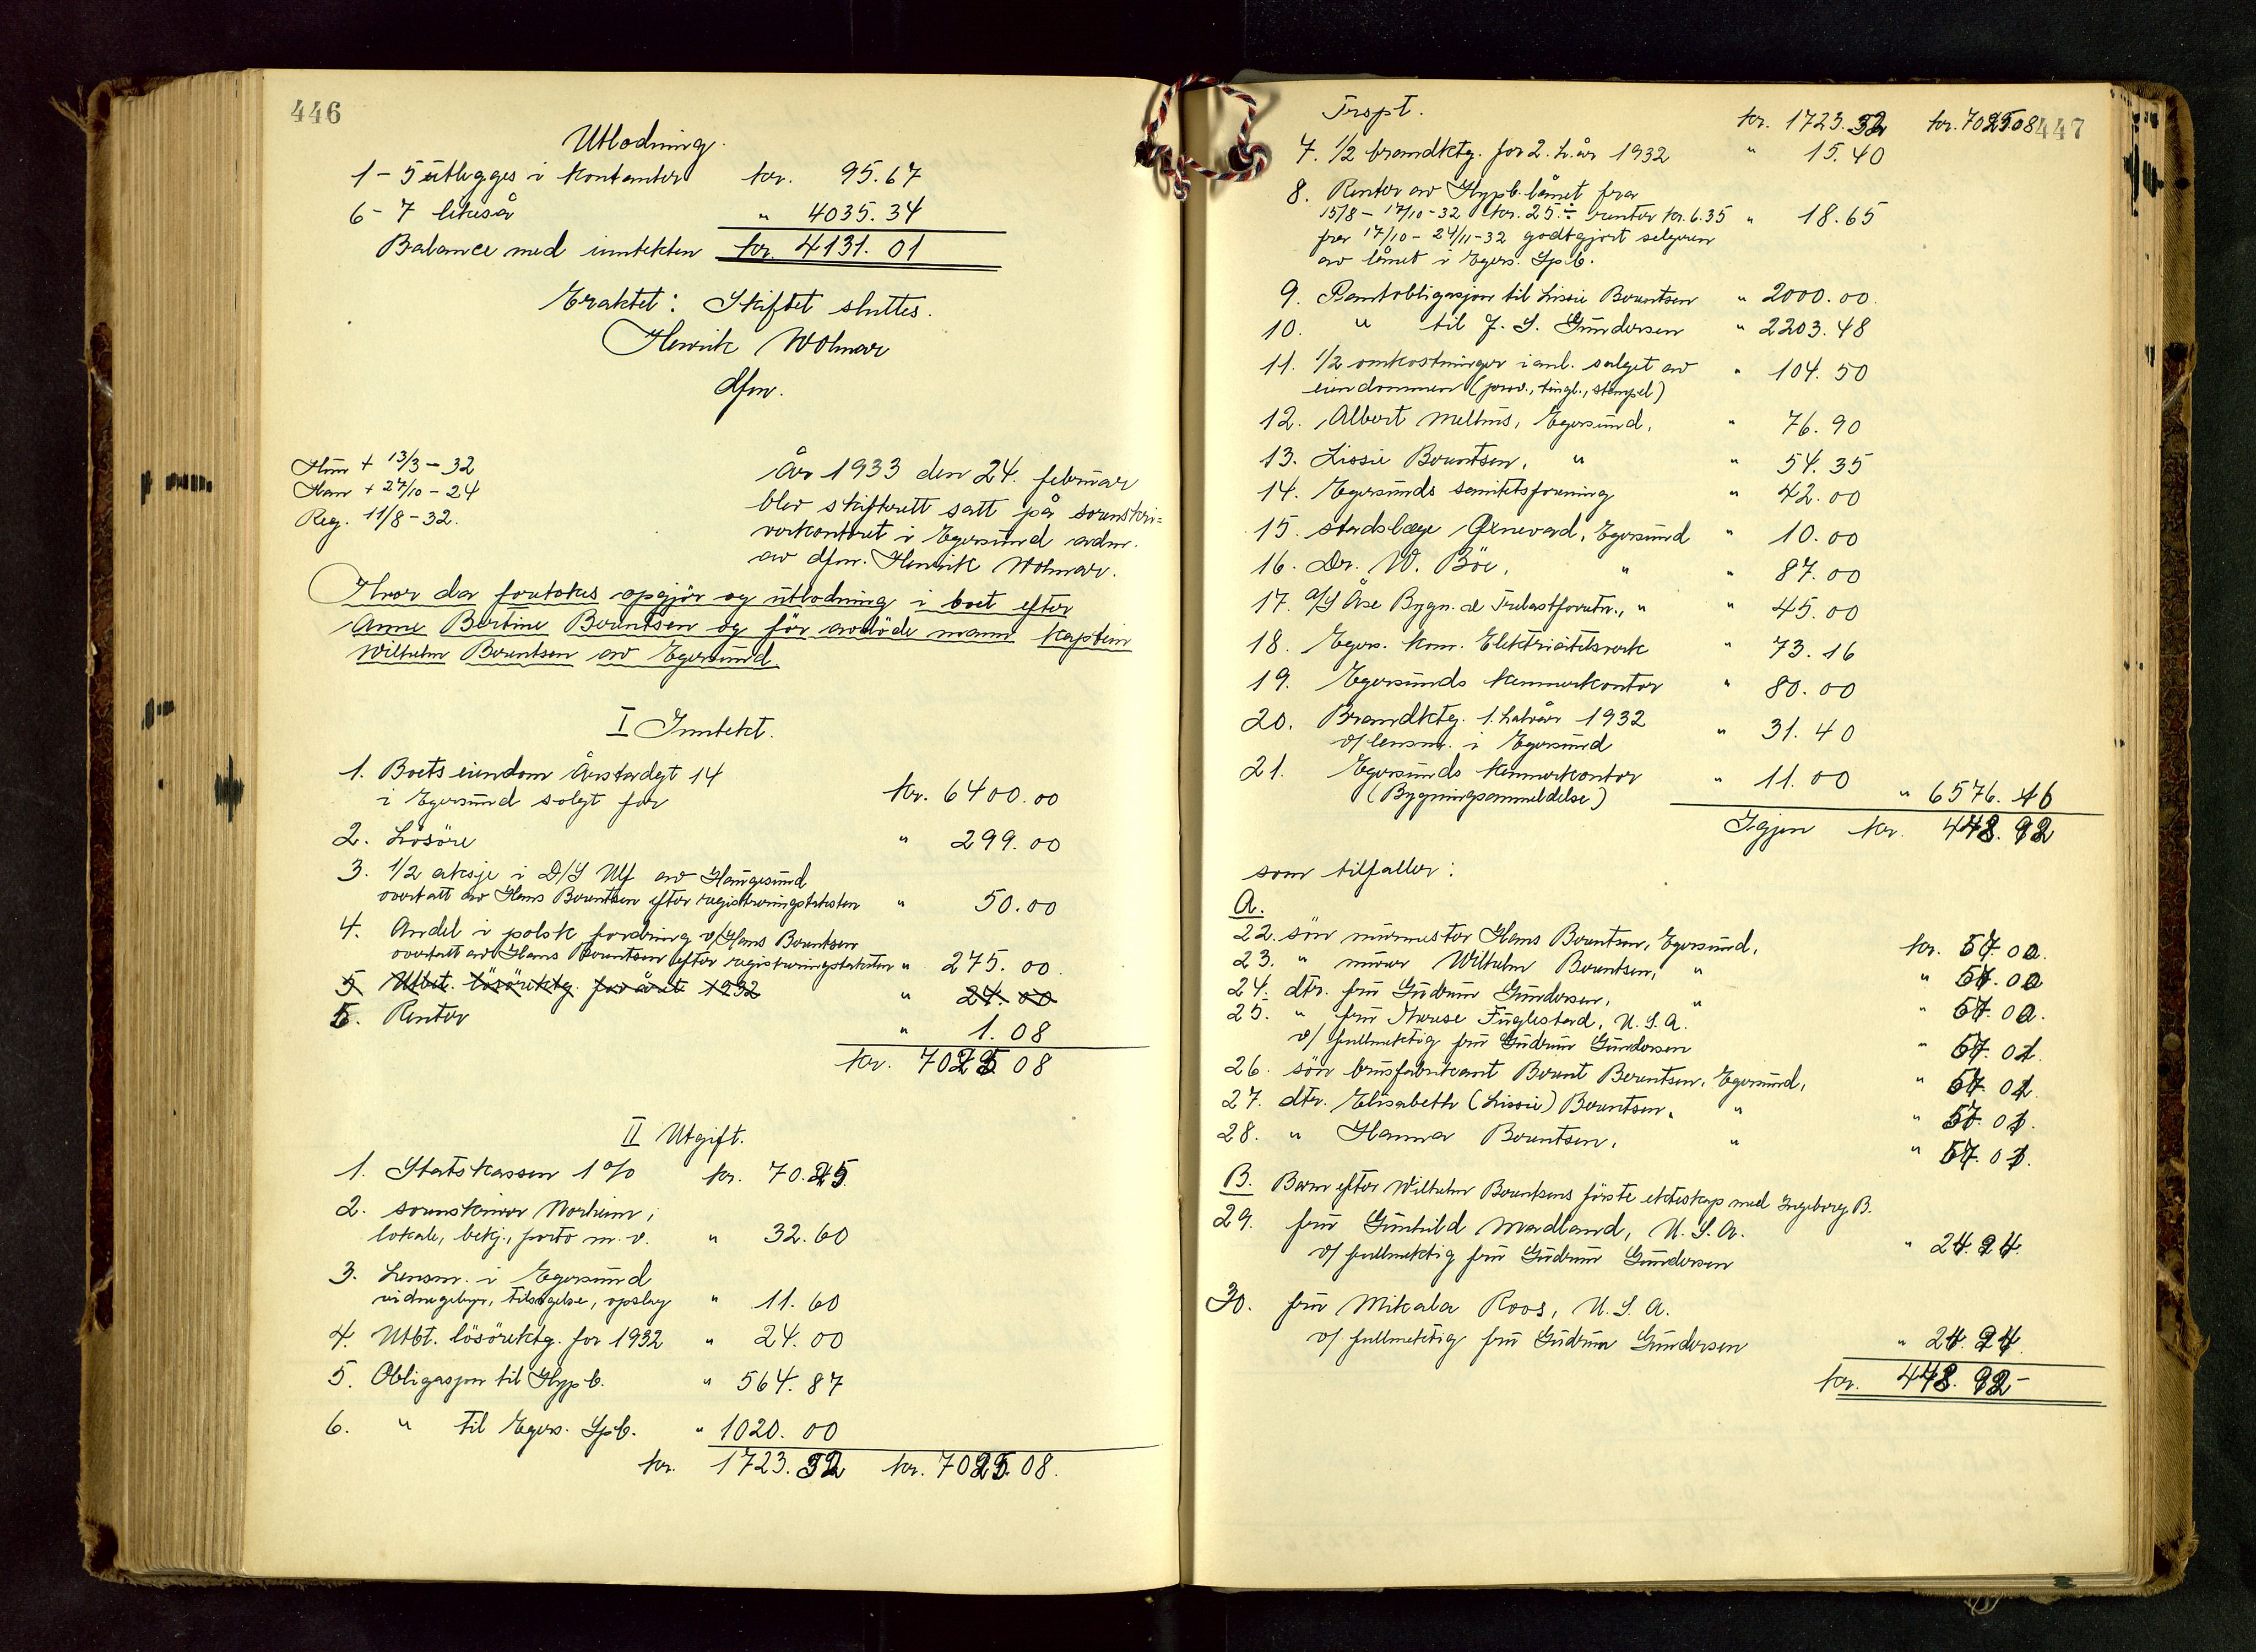 446
Utlodning.
1 - 5 utlegges i kontanter kr. 95.67
6 - 7 likeså " 4035.34
Balance med inntekten kr. 4131.01
Eraktet: Skiftet sluttes.
Henrik Wolmar
dfm.
Hun + 13/3 - 32
Han + 27/10 - 24
Reg. 11/8 - 32.
År 1933 den 24. februar
blev skifterett satt på sorenskri=
verkontoret i Egersund adm.
av dfm. Henrik Wolmar.
Hvor da foretokes opgjör og utlodning i boet efter
Anne Bertine Berentsen og för avdöde mann kaptein
Wilhelm Berentsen av Egersund.
I Inntekt.
1. Boets eiendom Årstadgt 14
i Egersund solgt for kr. 6400.00
2. Lösöre " 299.00
3. 1/2 aksje i D/S Ulf av Haugesund
overtatt av Hans Berentsen efter registreringstaksten " 50.00
4. Andel i polsk fordring v/Hans Berentsen
overtatt av Hans Berentsen efter registreringstaksten " 275.00
5. Utbet. lösörektg. for året 1932 " 24.00
5. Renter " 1.08
kr. 7025.08
II Utgift.
1. Statskassen 1% kr. 70.25
2. sorenskriver Norheim;
lokale, bekj., porto m.v. " 32.60
3. Lensm. i Egersund
vidnegebyr, tilsigelse, opslag " 11.60
4. Utbt. lösörektg. for 1932 " 24.00
5. Obligasjon til Hypb. " 564.87
6. " til Egers. Spb. " 1020.00
kr. 1723.32 kr. 7025.08.
447
Trspt. kr. 1723.32 kr. 7025.08
7. 1/2 brandktg. for 2. h.år 1932 " 15.40
8. Renter av Hypb. lånet fra
15/8 - 17/10 - 32 kr. 25.÷ renter kr. 6.35 " 18.65
fra 17/10 - 24/11 - 32 godtgjort selgeren
av lånet i Egers. Spb.
9. Pantobligasjon til Lissie Berentsen " 2000.00.
10. " til J. S. Gundersen " 2203.48
11. 1/2 omkostninger i anl. salget av
eiendommen (prov., tingl., stempel) " 104.50
12. Albert Melhus, Egersund, " 76.90
13. Lissie Berentsen, " " 54.35
14. Egersunds sanitetsforening " 42.00
15. stadslæge Grnevad, Egersund " 10.00
16. Dr. W. Böe, " " 87.00
17. A/S Åse Bygn. & Trelastforretn., " " 45.00
18. Egers. kom. Elektrisitetsverk " 73.16
19. Egersunds kemnerkontor " 80.00
20. Brandktg. 1. halvår 1932
v/ lensm. i Egersund " 31.40
21. Egersunds kemnerkontor
(Bygningsanmeldelse) " 11.00 " 6576.16
Igjen kr. 448.92
som tilfaller:
A.
22. sön murmester Hans Berentsen, Egersund, kr. 57.00.
23. " murer Wilhelm Berentsen, " " 57.00
24. dtr. fru Gudrun Gundersen, " " 57.00.
25. " fru Therese Fuglestad, U.S.A.
v/ fullmektig fru Gudrun Gundersen " 57.01.
26. sön brusfabrikant Berent Berentsen, Egersund, " 57.01.
27. dtr. Elisabeth (Lissie) Berentsen, " " 57.01.
28. " Hanna Berentsen, " " 57.01.
B. Barn efter Wilhelm Berentsens förste ekteskap med Ingeborg B.
29. fru Gunhild Madland, U.S.A.
v/ fullmektig fru Gudrun Gundersen " 24.94.
30. fru Mikala Roos, U.S.A.
v/ fullmektig fru Gudrun Gundersen " 24.94.
kr. 448.92 -